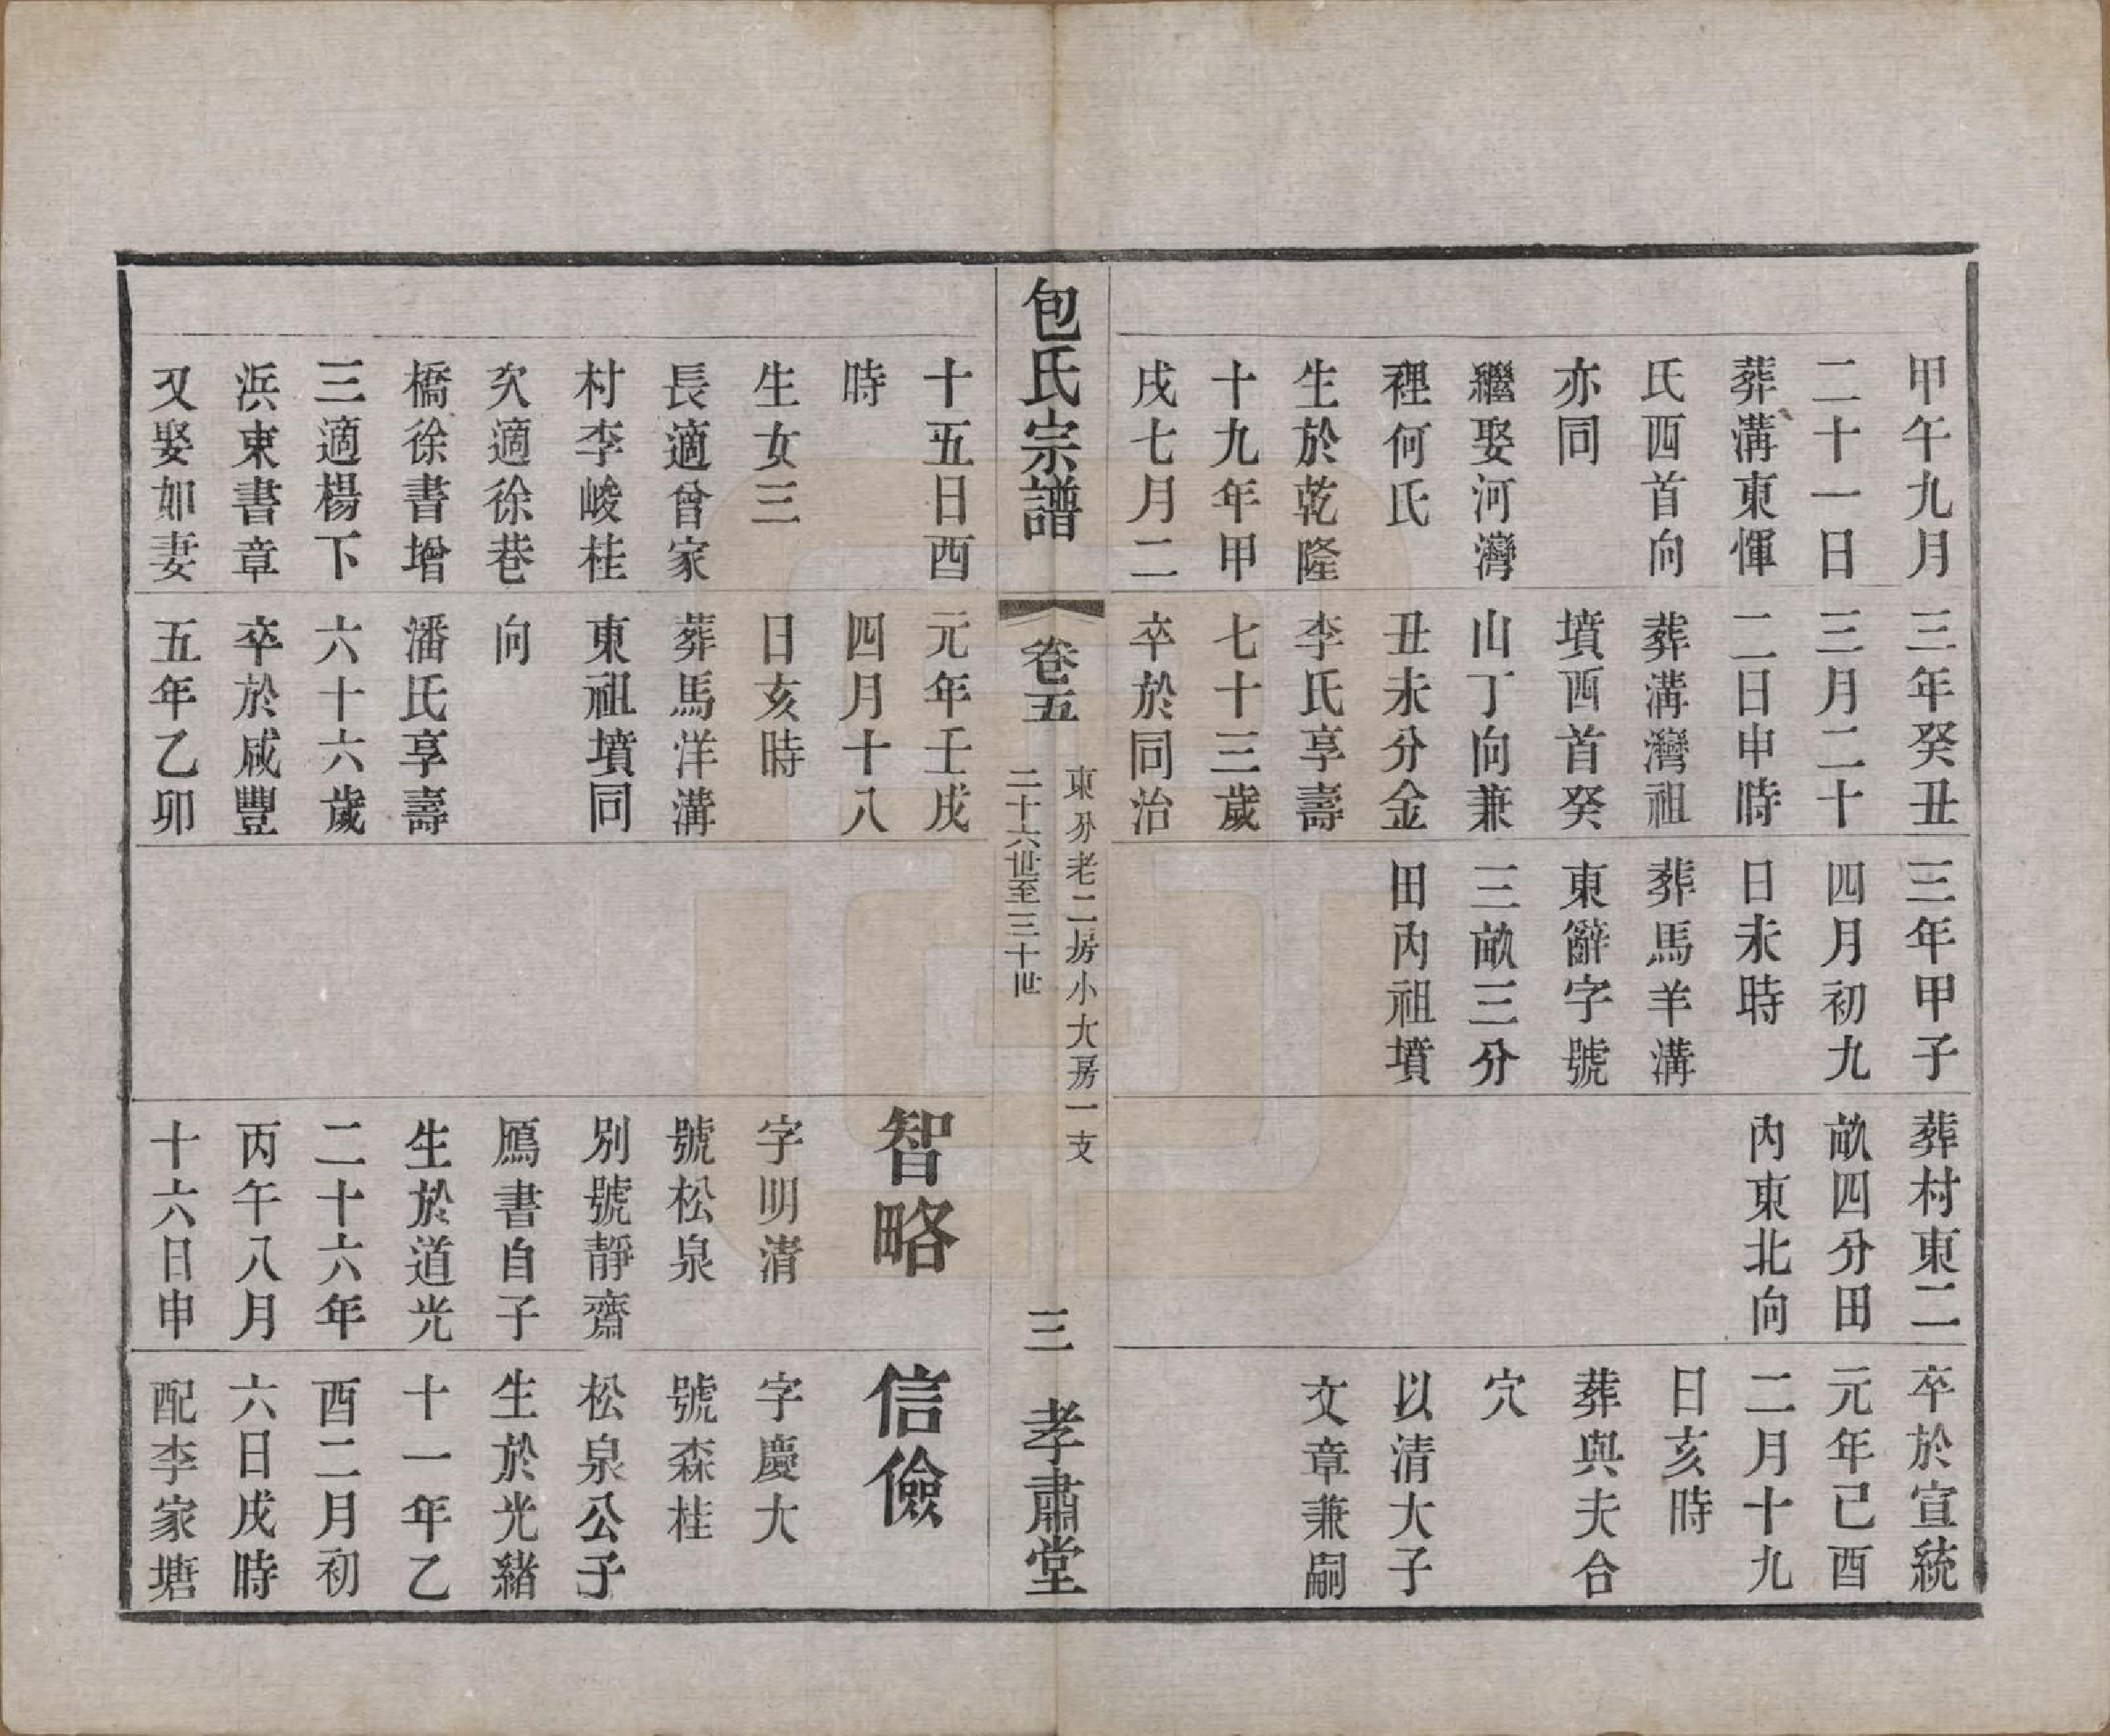 甲午九月
二十一日
葬溝東惲
氏西首向
亦同
繼娶河灣
裡何氏
生於乾隆
十九年甲
戌七月二
三年癸丑
三月二十
二日申時
葬溝灣祖
墳西首癸
山丁向兼
丑未分金
李氏享壽
七十三歲
卒於同治
三年甲子
四月初九
日未時
葬馬羊溝
東辭字號
三畝三分
田內祖墳
葬村東二
畝四分田
內東北向
卒於宣統
元年己酉
二月十九
日亥時
葬與夫合
穴
以清大子
文章兼嗣
包氏宗譜
卷五
東分老二房小大房一支
二十六世至三十世
三
孝肅堂
十五日酉
時
生女三
長適曾家
村李峻桂
次適徐巷
橋徐書增
三適楊下
浜東書章
又娶如妻
元年壬戌
四月十八
日亥時
葬馬洋溝
東祖墳同
向
潘氏享壽
六十六歲
卒於咸豐
五年乙卯
智略
字明清
號松泉
別號靜齋
鴈書自子
生於道光
二十六年
丙午八月
十六日申
信儉
字慶大
號森桂
松泉公子
生於光緒
十一年乙
酉二月初
六日戌時
配李家塘